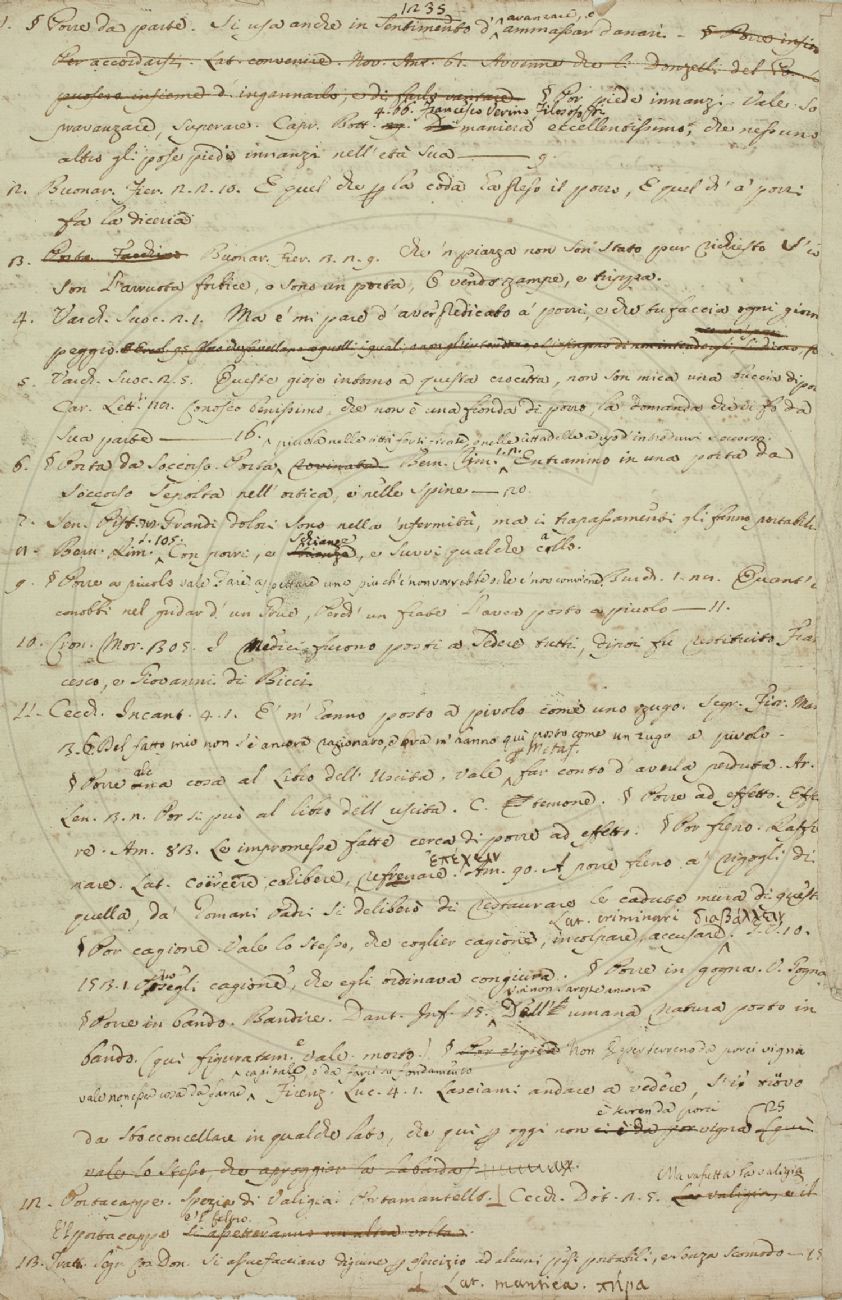 1235
1. § Porre da parte. Si usa anche in Sentimento d' avanzare, e ammassar danari. - § Porre insieme
Per accordarsi. Lat. convenire. Nov. Ant. 61. Avvenne che li Donzelli del
puosero insieme d'ingannarlo, e di farlo cantare. § Por piede innanzi. Vale So
pravanzare, Superare. Capr. Bott. 4. 66. Francesco Verino Filosofo di maniera eccellentissimo, che nessuno
altro gli pose piede innanzi nell'età Sua — 9.
2. Buonar. Fier. 2. 2. 10. E quel che la coda ha steso il porro, E quel ch' a' porri
fa la diceria
3. Porta Facchino Buonar. Fier. 3. 2. 9. Che 'n piazza non son stato pur richiesto S'io
son l'arruota forbice, o sono un porta, O vendo zampe, e trippa.
4. Varch. Suoc. 2. 1. Ma e' mi pare d'aver predicato a' porri, e che tu faccia ogni giorn
peggio
5. Varch. Suoc. 2. 5. Queste gioje intorno a questa crocetta, non son mica una buccia di por
Car. Lett. Conosco benissimo, che non è una fronda di porro, la domanda che vi fo da
Sua parte — 16.
6. § Porta da Soccorso. Porta piccola nelle città forti rovinata Bern. Rim. Entrammo in una porta da
Soccorso Sepolta nell'ortica, e nelle spine — 20.
7. Sen. Pist. Grandi dolori sono nella 'nfermità, ma i trapassamenti gli fanno portabili
8. Bern. Rim. 1. 105. Con porri, e schianze, e survi qualche callo.
9. § Porre a pivolo vale Fare aspettare uno più ch' e' non vorrebbe o che e' non conviene. Burch. 1. Quant'i
conobbi nel gridar d'un Grue, Ched' un frate l'avea posto a pivolo — 11.
10. Cron. Mor. 305. I Medici furono posti a Sedere tutti, dipoi fu restituito Fran
cesco, e Giovanni di Bicci.
11. Cecch. Incant. 4. 1. E' m' hanno posto a pivolo come uno zugo. Segr. Fior. Man
3. 6. Del fatto mio non s'è ancora ragionato, e ora m'hanno qui posto come un zugo a pivolo -
§ Porre alc una cosa al Libro dell'Uscita. Vale Metaf. far conto d'averla perduta. Ar.
Len. 3. 2. Por si può al libro dell'uscita. C. Etemone. § Porre ad effetto. Effe
re. Am. 83. Le impromesse fatte cerca di porre ad effetto. § Por freno. Raffre
nare. Lat. coërcere cohibere, refrenare. ἐπέχειν Am. 90. A porre freno a' rigogli di
quella, da' Romani Padri si deliberò di restaurare le cadute mura di quest
§ Por cagione Vale lo stesso, che coglier cagione, incolpare, accusare. Lat. criminari διαβάλλειν G. V. 10.
153. 1 Posegli cagione, che egli ordinava congiura. § Porre in gogna. V. Gogna
§ Porre in bando. Bandire. Dant. Inf. 15. Voi non sareste ancora Dell' umana natura posto in
bando. (qui figuratam. e vale morto). § Por vigna Non esser terreno da porci vigna
vale non esser cosa da farne capitale, o da farvi su fondamento Firenz. Luc. 4. 1. Lasciami andare a vedere, s'io trovo
da sbocconcellare in qualche lato, che qui oggi non è terren da porci vigna 25
vale lo stesso, che appoggiar la labarda
12. Portacappe. Spezie di Valigia. Portamantello. Cecch. Dot. 2. 5. Ma rassetta la valigia
E 'l portacappe e 'l feltro. si aspetteranno un'altra volta.
13. Tratt. Segr. Cos. Don. Si assuefacciano digiune esercizio ad alcuni pesi portabili, e senza scomodo —
Lat. mantica. πήρα